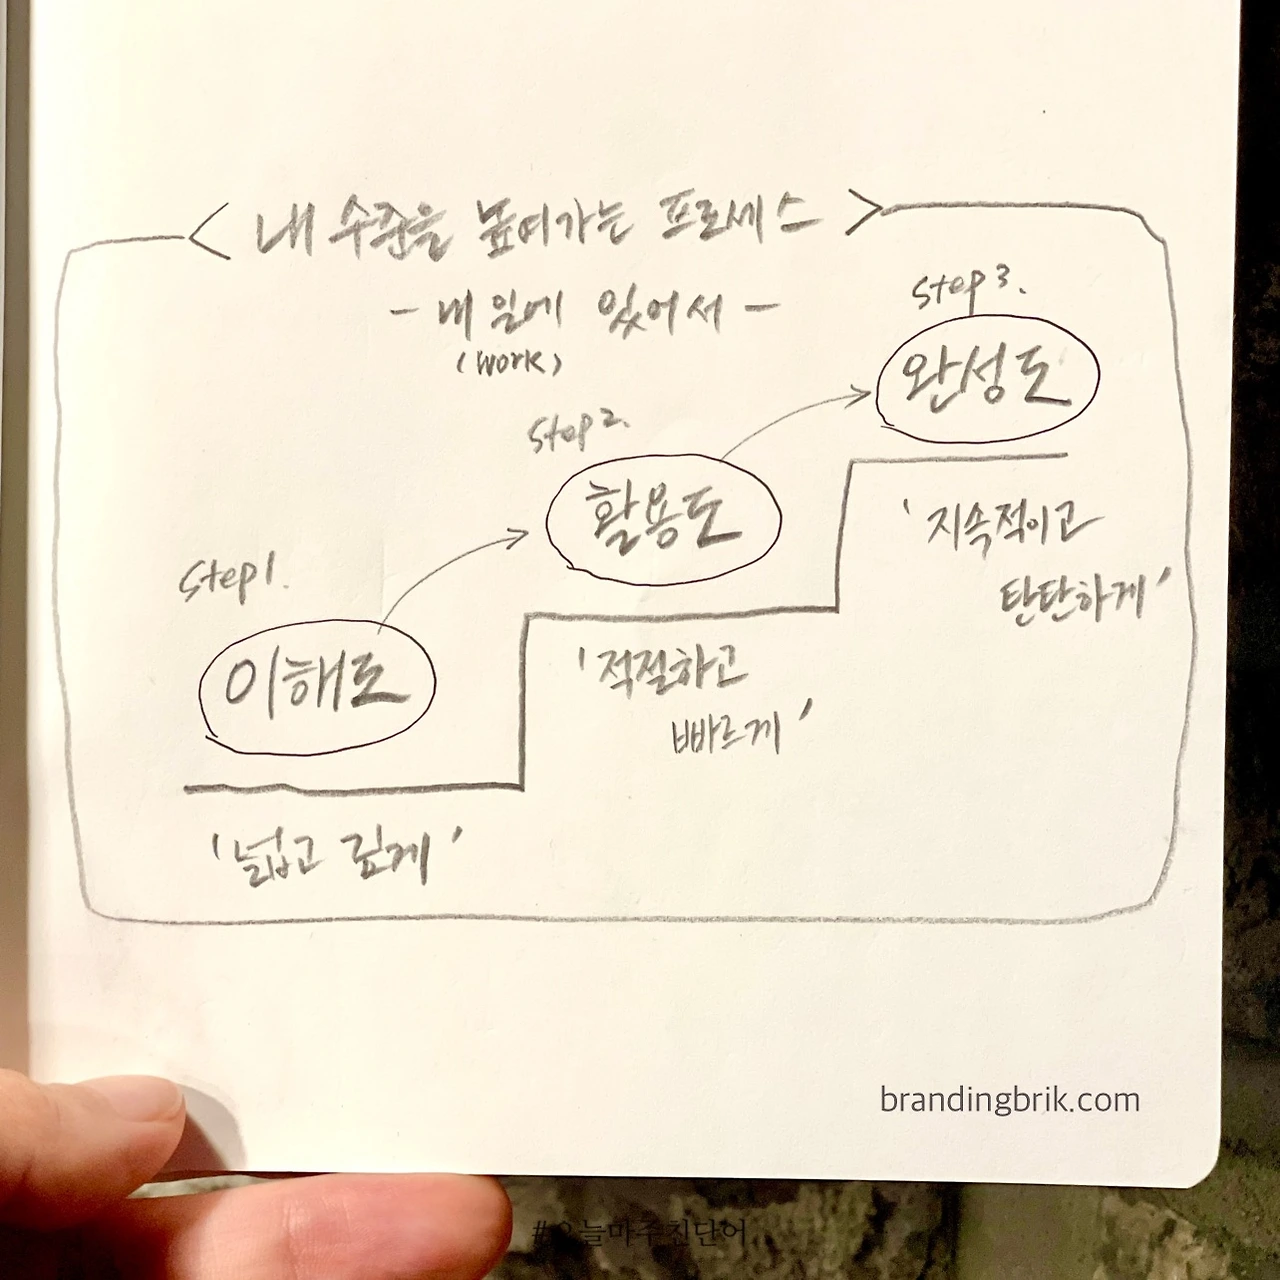 < 내 수준을 높여가는 프로세스 >
- 내 일에 있어서 -
(work)
step1.
이해도
'넓고 깊게'
step2.
활용도
'적절하고
빠르게'
step3.
완성도
'지속적이고
탄탄하게'
brandingbrik.com
#오늘마주친단어